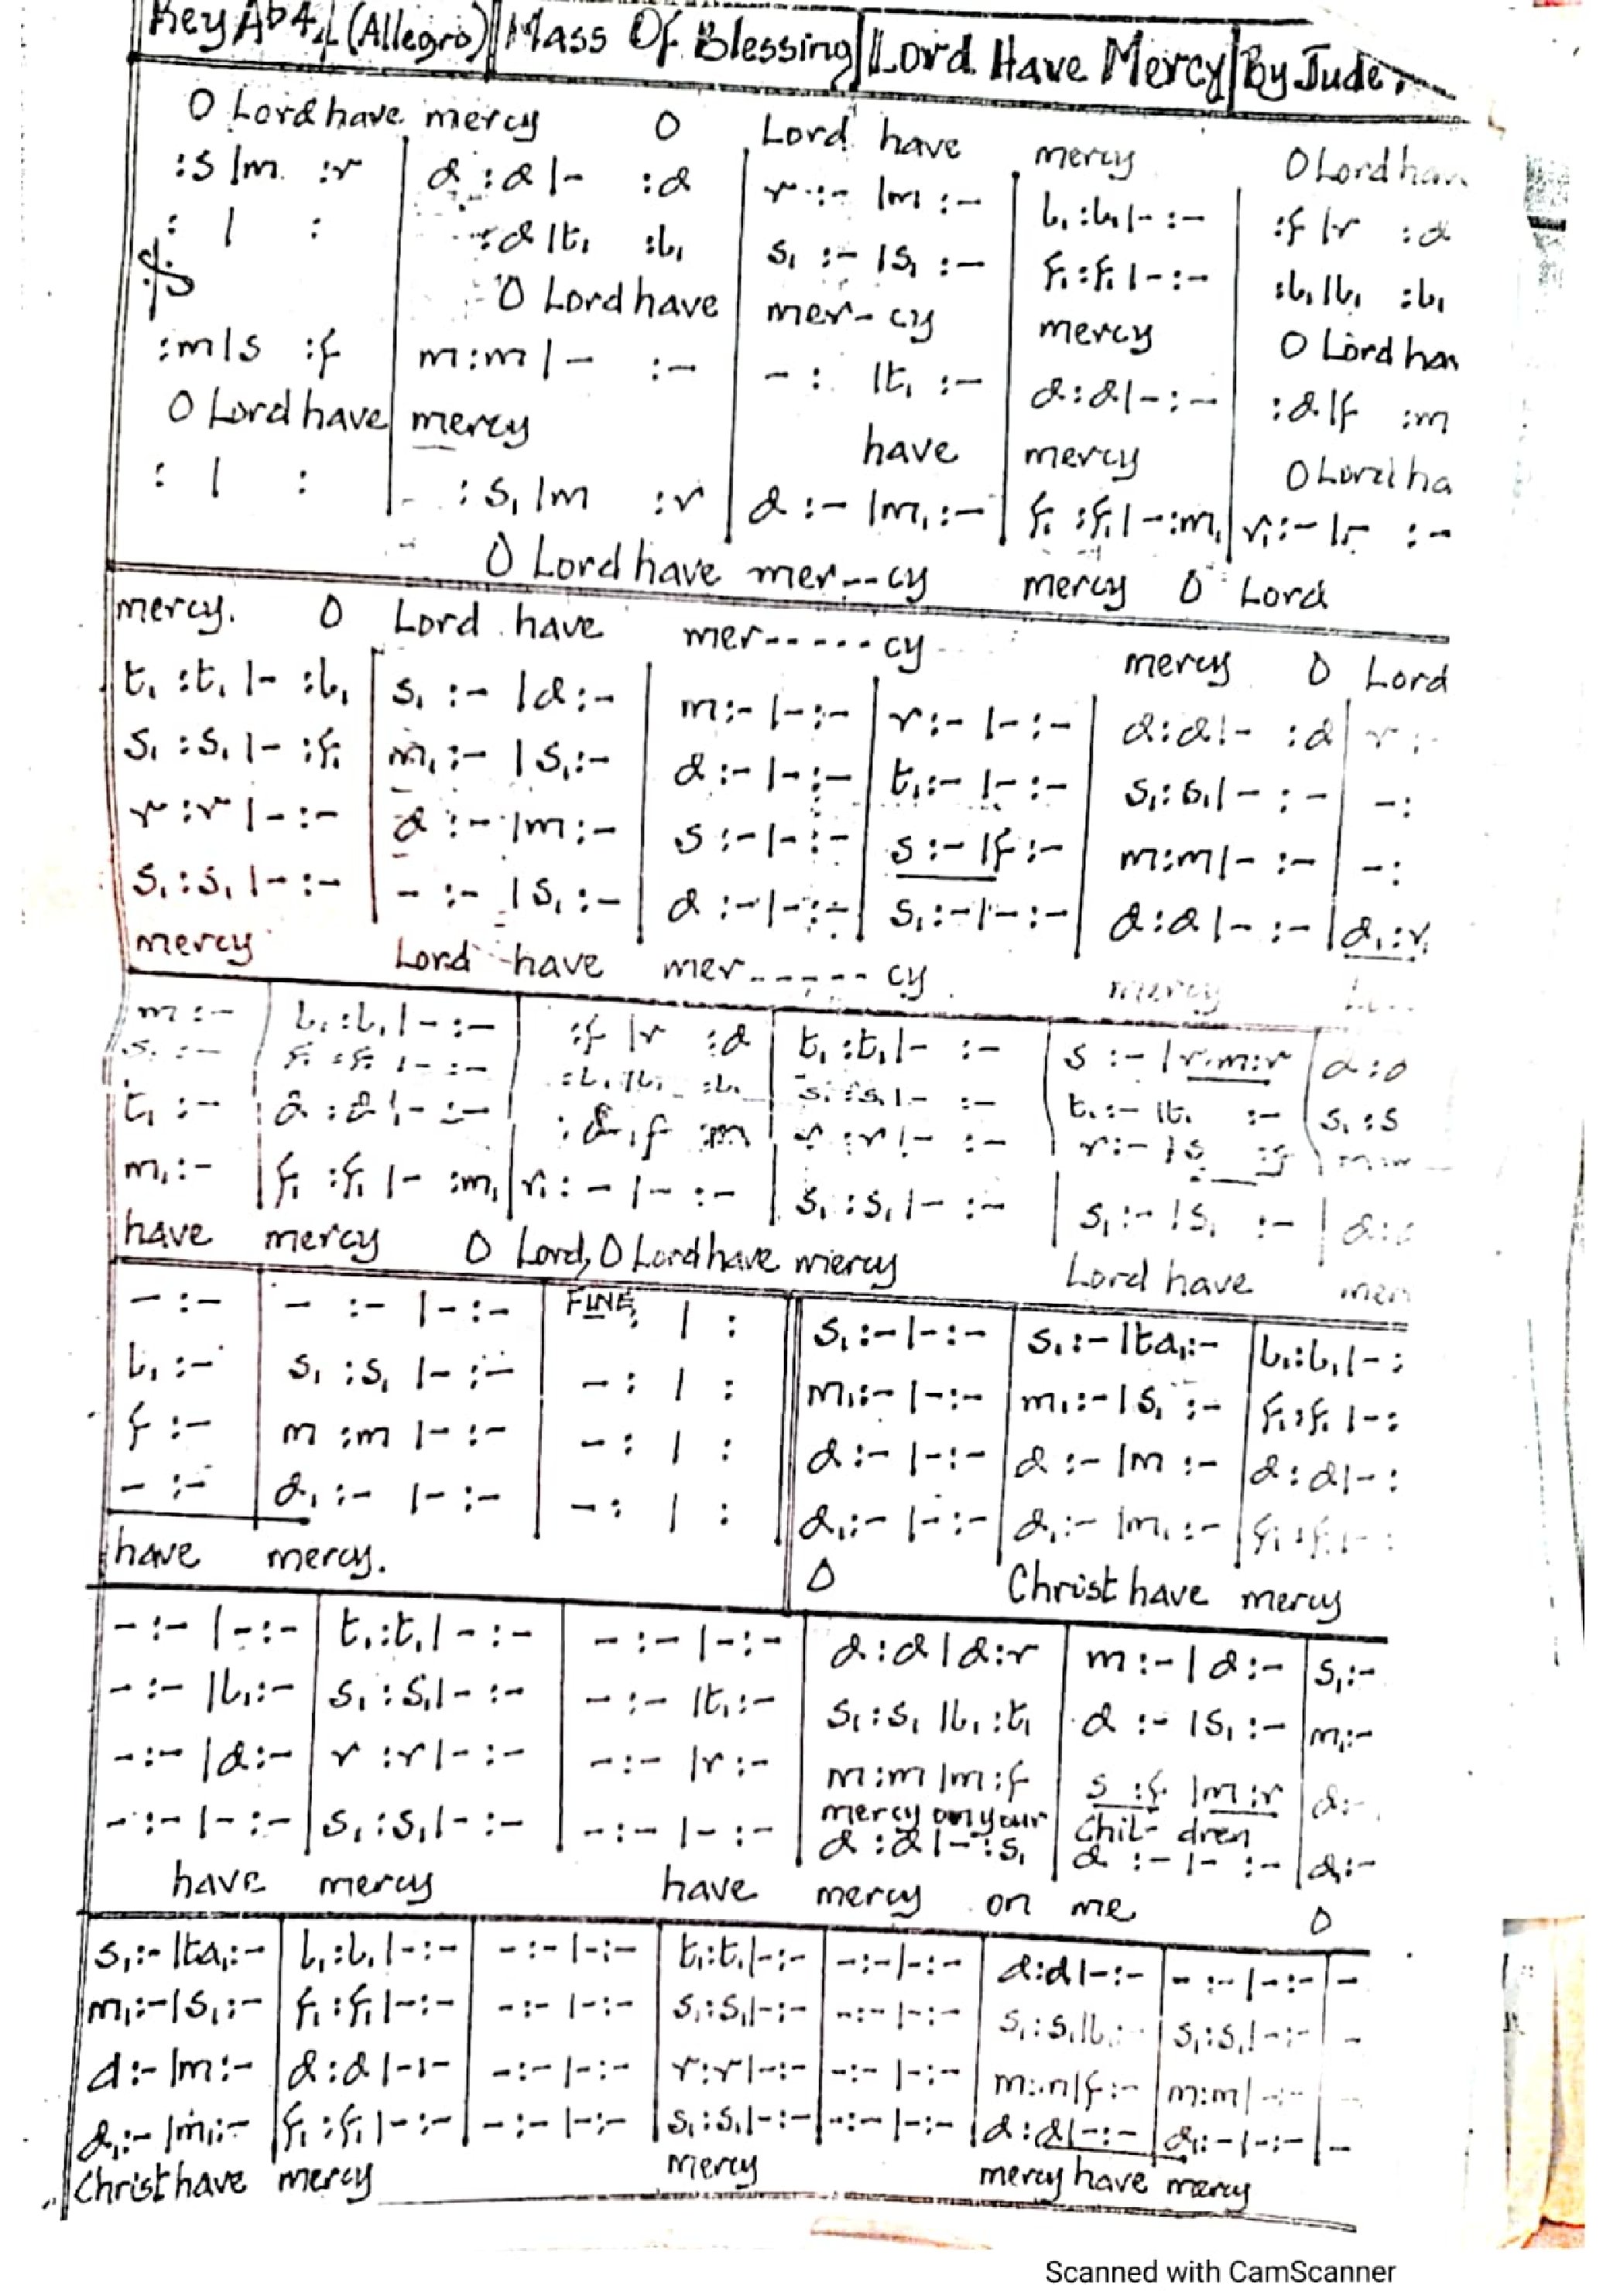 Key Ab 4/4 (Allegro) Mass Of Blessing Lord Have Mercy By Jude.
O Lord have mercy O Lord have mercy O Lord hav
:s |m :r | d :d |- :d | r :- |m :- | l₁ :l₁ |- :- | :f |r :d
: | : | :d |t₁ :l₁ | s₁ :- |s₁ :- | f₁ :f₁ |- :- | :l₁ |l₁ :l₁
O Lord have mer-cy mercy O Lord hav
:m |s :f | m :m |- :- | - : |t₁ :- | d :d |- :- | :d |f :m
O Lord have mercy have mercy O Lord ha
: | : | :s₁ |m :r | d :- |m₁ :- | f₁ :f₁ |- :m₁ | r₁ :- |- :-
O Lord have mer--cy mercy O Lord
mercy. O Lord have mer------cy mercy O Lord
t₁ :t₁ |- :l₁ | s₁ :- |d :- | m :- |- :- | r :- |- :- | d :d |- :d | r :-
s₁ :s₁ |- :f₁ | m₁ :- |s₁ :- | d :- |- :- | t₁ :- |- :- | s₁ :s₁ |- :- | - :
r :r |- :- | d :- |m :- | s :- |- :- | s :- |f :- | m :m |- :- | - :
s₁ :s₁ |- :- | - :- |s₁ :- | d :- |- :- | s₁ :- |- :- | d :d |- :- | d₁ :r₁
mercy Lord have mer------cy mercy
m :- | l₁ :l₁ |- :- | :f |r :d | t₁ :t₁ |- :- | s :- |r.m:r | d :d
s₁ :- | f₁ :f₁ |- :- | :l₁ |l₁ :l₁ | s₁ :s₁ |- :- | t₁ :- |t₁ :- | s₁ :s
t₁ :- | d :d |- :- | :d |f :m | r :r |- :- | r :- |s :f | m :m
m₁ :- | f₁ :f₁ |- :m₁ | r₁ :- |- :- | s₁ :s₁ |- :- | s₁ :- |s₁ :- | d :
have mercy O Lord, O Lord have mercy Lord have mer
- :- | - :- |- :- | FINE | : | s₁ :- |- :- | s₁ :- |ta₁ :- | l₁ :l₁ |- :
l₁ :- | s₁ :s₁ |- :- | - : | : | m₁ :- |- :- | m₁ :- |s₁ :- | f₁ :f₁ |- :
f :- | m :m |- :- | - : | : | d :- |- :- | d :- |m :- | d :d |- :
- :- | d₁ :- |- :- | - : | : | d₁ :- |- :- | d₁ :- |m₁ :- | f₁ :f₁ |- :
have mercy. O Christ have mercy
- :- |- :- | t₁ :t₁ |- :- | - :- |- :- | d :d |d :r | m :- |d :- | s₁ :-
- :- |l₁ :- | s₁ :s₁ |- :- | - :- |t₁ :- | s₁ :s₁ |l₁ :t₁ | d :- |s₁ :- | m₁ :-
- :- |d :- | r :r |- :- | - :- |r :- | m :m |m :f | s :f |m :r | d :-
mercy on your Chil- dren
- :- |- :- | s₁ :s₁ |- :- | - :- |- :- | d :d |- :s₁ | d :- |- :- | d₁ :-
have mercy have mercy on me O
s₁ :- |ta₁ :- | l₁ :l₁ |- :- | - :- |- :- | t₁ :t₁ |- :- | - :- |- :- | d :d |- :- | - :- |- :- | -
m₁ :- |s₁ :- | f₁ :f₁ |- :- | - :- |- :- | s₁ :s₁ |- :- | - :- |- :- | s₁ :s₁ |l₁ :- | s₁ :s₁ |- :- | -
d :- |m :- | d :d |- :- | - :- |- :- | r :r |- :- | - :- |- :- | m :m |f :- | m :m |- :-
d₁ :- |m₁ :- | f₁ :f₁ |- :- | - :- |- :- | s₁ :s₁ |- :- | - :- |- :- | d :d |- :- | d₁ :- |- :- | -
Christ have mercy mercy mercy have mercy
Scanned with CamScanner